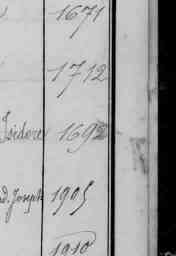 1671
1712
Isidore 1692
d. Joseph 1905
1910